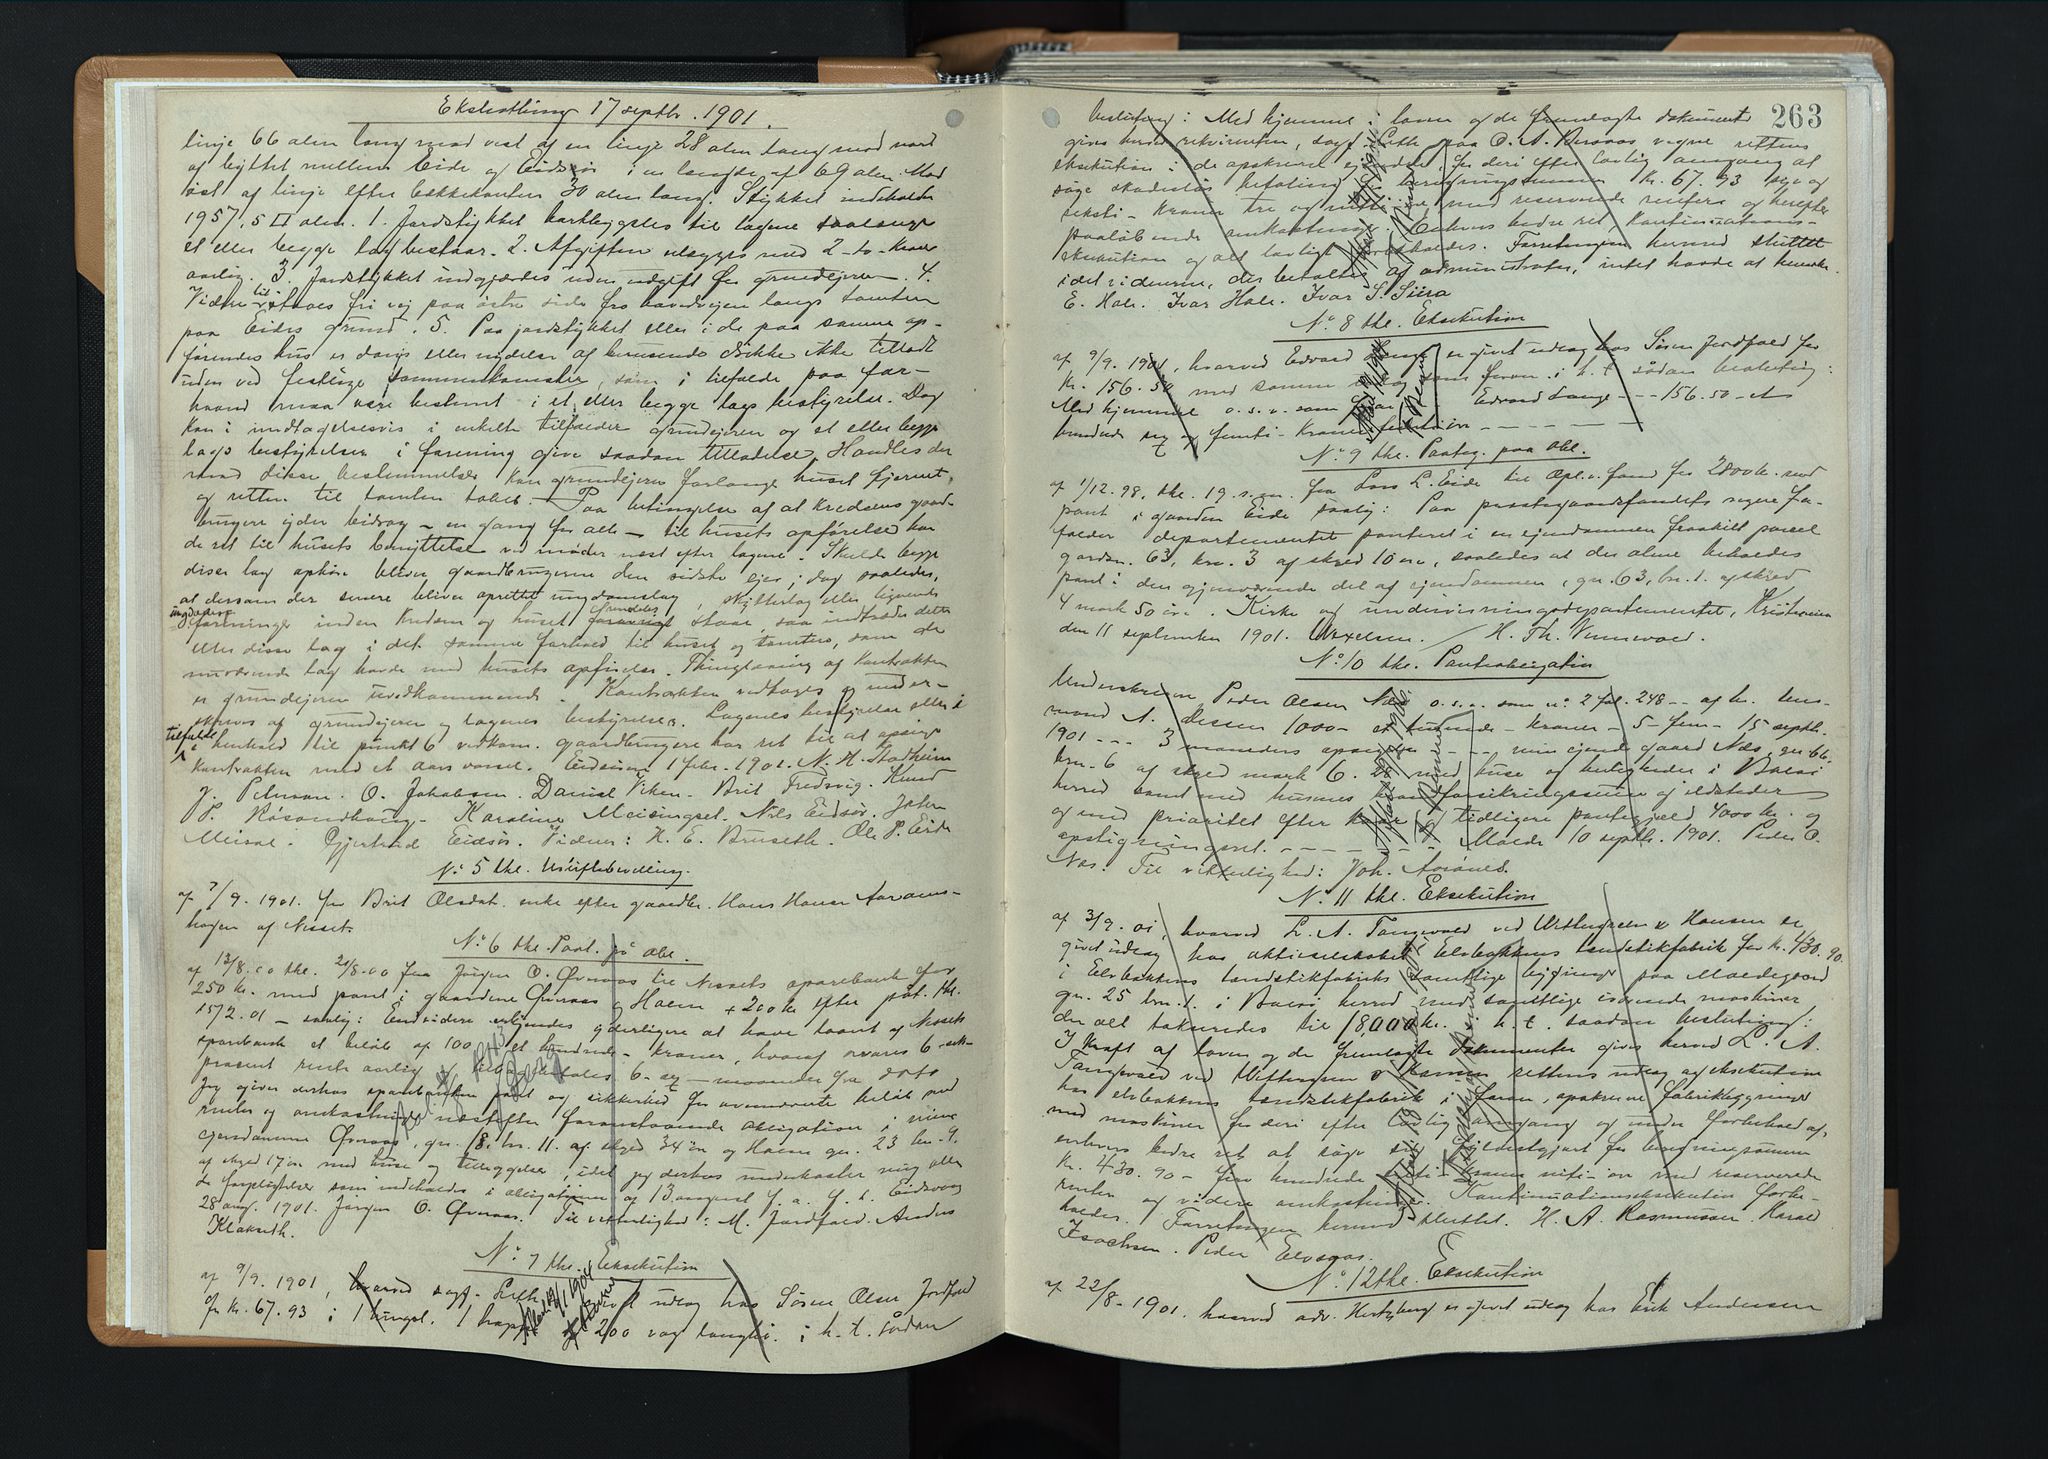 Ekstrathing 17 septbr. 1901.
linje 66 alen lang mod vest af en linje 28 alen lang mod nord
af byttet mellem Eide og Eidsør i en længde af 69 alen. Mod
øst af linje efter bækkekanten 30 alen lang. Stykket indeholder
1957,5 □ alen. 1. Jordstykket bortbygsles til lagene saalænge
et eller begge lag bestaar. 2. Afgiften udlægges med 2 - to - kroner
aarlig. 3. Jordstykket indgjærdes uden udgift for grundejeren 4.
Videre til staaes fri vej paa østre side fra hovedvejen langs tomten
paa Eides grund. 5. Paa jordstykket eller i de paa samme op-
førendes hus er dans eller nydelse af berusende drikke ikke tilladt
uden ved festlige sammenkomster, som i tilfælde paa for-
haand maa være bestemt i et eller begge lags bestyrelse. Dog
kan i undtagelsesvis i enkelte tilfælder grundejeren og et eller begge
lags bestyrelser i forening give saadan tilladelse. Handles der
mod disse bestemmelser kan grundejeren forlange huset fjernet,
og retten til tomten tabes. - Paa betingelse af at kredsens gaard-
brugere yder bidrag - en gang for alle - til husets opførelse har
de ret til husets benyttelse ved møder næst efter lagene. Skulde begge
disse lag ophøre bliver gaardbrugerne den sidste ejer, dog saaledes,
at dersom der senere bliver oprettet ungdomslag, skytterlag eller lignende
ungdoms
foreninge inden kredsen og huset fremdeles staar, saa indtræder dette
eller disse lag i det samme forhold til huset og tomten, som de
nuværende lag havde ved husets opførelse. Thinglæsning af kontrakten
er grundejeren uvedkommende. Kontrakten vedtages og under-
skrives af grundejeren og lagenes bestyrelser. Lagenes bestyrelse eller i
tilfælde
i henhold til punkt 6 vedkom. gaardbrugere har ret til at opsige
kontrakten med et aars varsel. Eidsøren 1 febr. 1901. N. H. Stadheim
J. Petersen. O. Jakobsen. Daniel Viken. Brit Fredsvig. Knud
P. Røsandhaug. Karoline Meisingset. Nils Eidsør. John
Meisal. Gjertrud Eidsør. Vidner: H. E. Bruseth. Ole P. Eide
No 5 thl. Uskiftebevilling.
af 7/9. 1901. for Brit Olsdat. enke efter gaardbr. Hans Hansen Aarams-
haugen af Nesset.
No 6 thl. Paat. på obl.
af 13/8.00 thl. 21/8.00 fra Jørgen O. Øveraas til Nessets sparebank for
250 kr. med pant i gaardene Øveraas og Hoem + 200 kr efter påt. thl.
15/2.01 - saalyd: Endvidere erkjendes yderligere at have laant af Nessets
sparebank et beløb af 100 - et hundrede - kroner, hvoraf svares 6 - sek-
procent rente aarlig 6 - seks - maaneder fra dato
Jeg giver derhos sparebanken pant og sikkerhed for ovennævnte beløb med
renter og omkostninger næstefter foranstaaende obligation i mine
ejendomme Øveraas, gn. 18. bn. 11. af skyld 34 øre og Hoem gn. 23 bn. 9.
af skyld 17 øre med huse og tilliggelser, idet jeg derhos underkaster mig alle
de forpligtelser som indeholdes i obligationen af 13 august f. a. Eidsvaag
28 aug. 1901. Jørgen O. Øveraas. Til vitterlighed: M. Jordfald. Anders
Klokseth.
No 7 thl. Eksekution
af 9/9. 1901, hvorved sagf. Leth udlæg hos Søren Olsen Jordfald
for Kr. 67.93 i 1 1 200 vog i h. t. sådan
Aflæst 19/1 1904
263
beslutning: Med hjemmel i loven og de fremlagte dokumenter
gives herved rekvirenten, sagf. Leth paa O. A. Øveraas vegne rettens
eksekution i de opskrevne ejendele, for deri efter lovlig omgang at
søge skadesløs betaling for beregningssummen Kr. 67.93 syv og
seksti - kroner tre og nitti øre med reservende renter og herefter
paaløbende omkostninger. Enhvers bedre ret, kontinuations-
eksekution og alt lovligt forbeholdes. Forretningen hermed sluttet
idet vidnerne, der betaltes af administrator, intet havde at bemærke.
E. Hole. Ivar Hole. Ivar S. Siira
No 8 thl. Eksekution
af 9/9. 1901, hvorved Edvard Lange er givet udlæg hos Søren Jordfald for
Kr. 156.50 med samme udlæg som foran i h. t. sådan beslutning:
Med hjemmel o. s. v. som foran Edvard Lange - - - 156.50 - et
hundrede seks og femti - kroner femti øre - - - - - -
No 9 thl. Paateg. paa obl.
af 1/12. 98, thl. 19. s. m. fra Lars L. Eide til Opl. v. fond for 2800 kr. med
pant i gaarden Eide saalyd: Paa prestegaardsfondets vegne fra-
falder departementet panteret i en ejendommen fraskilt parcel
gardsn. 63, brn. 3 af skyld 10 øre, saaledes at der alene beholdes
pant i den gjenværende del af ejendommen, gn. 63, bn. 1. af skyld
4 mark 50 øre. Kirke og undervisningsdepartementet, Kristiania
den 11 september 1901. Wexelsen. / H. Th. Vennevold.
No 10 thl. Pantobligation
Underskrevne Peder Olsen Næs o. s. v. som no 2 fol. 248 -- af hr. lens-
mand A. Dessen 1000 - et tusinde - kroner - 5 - fem - 15 septbr.
1901 - - - 3 maaneders opsigelse - - - min ejende gaard Næs, gn 66.
brn. 6 af skyld mark 6.24 med huse og herligheder i Bolsø
herred samt med husenes brandforsikringssum og ildsteder
og med prioritet efter tidligere pantegjæld 4000 kr. og
opstigningsret. - - - - - Molde 10 septbr. 1901. Peder O.
Næs. Til vitterlighed: Joh. Aarønes.
No 11 thl. Eksekution
af 3/9. 01, hvorved L. A. Tangevald ved Wittergreen & Hansen er
givet udlæg hos aktieselskabet Elvbakkens tændstikfabrik for kr. 430.90.
i Elvbakkens tændstikfabriks samtlige bygninger paa Moldegaard
gn. 25 brn. 1. i Bolsø herred med samtlige isværende maskiner
der alt taksertes til 18,000 kr. i h. t. saadan beslutning:
I kraft af loven og de fremlagte dokumenter gives herved L. A.
Tangevald ved Wittergreen & Hansen rettens udlæg og eksekution
hos Elvbakkens tændstikfabrik i foran opskrevne fabriksbygninger
med maskiner for deri efter lovlig omgang og under forbehold af
enhvers bedre ret at søge sig fyldestgjort for beregningssummen
kr. 430.90 - fire hundrede tretti - kroner nitti - øre med reserverede
renter og videre omkostninger. Kontinuationseksekution forbe-
holdes. Forretningen hermed sluttet. H. A. Rasmussen. Harald
Isachsen. Peder Elvsaas.
No 12 thl. Eksekution
af 22/8. 1901. hvorved adv. Hertzberg er givet udlæg hos Erik Andersen